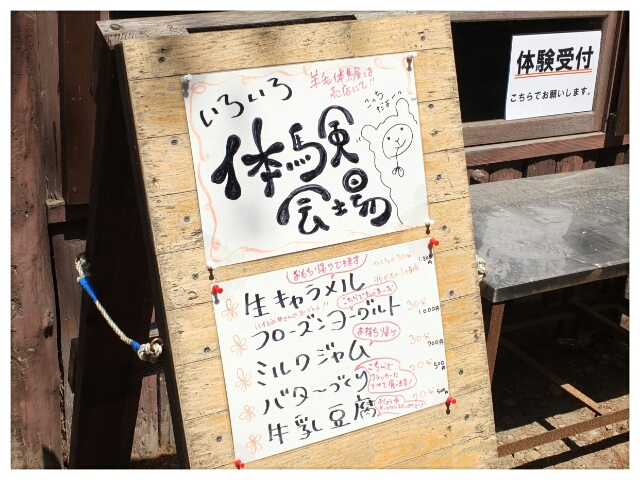 羊毛体験は
売店にて!!
いろいろ
体験
会場
こっち
だよー
体験受付
こちらでお願いします。
お持ち帰りできます
生キャラメル
フローズンヨーグルト 30分
1000円
ミルクジャム お持ち帰り 30分
700円
バターづくり こちらで
クラッカーに
つけて食べます! 20分 500円
牛乳豆腐 20分 500円